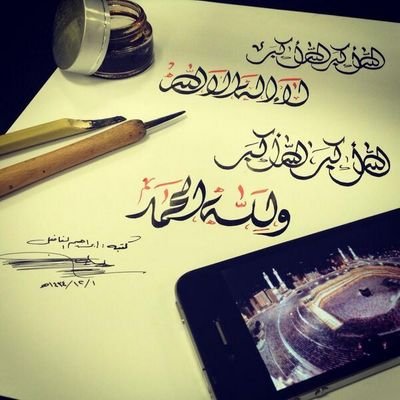 الله أكبر الله أكبر
لا إله إلا الله
الله أكبر الله أكبر
ولله الحمد
كتبه : إبراهيم
١٤٣٤/١٢/١هـ